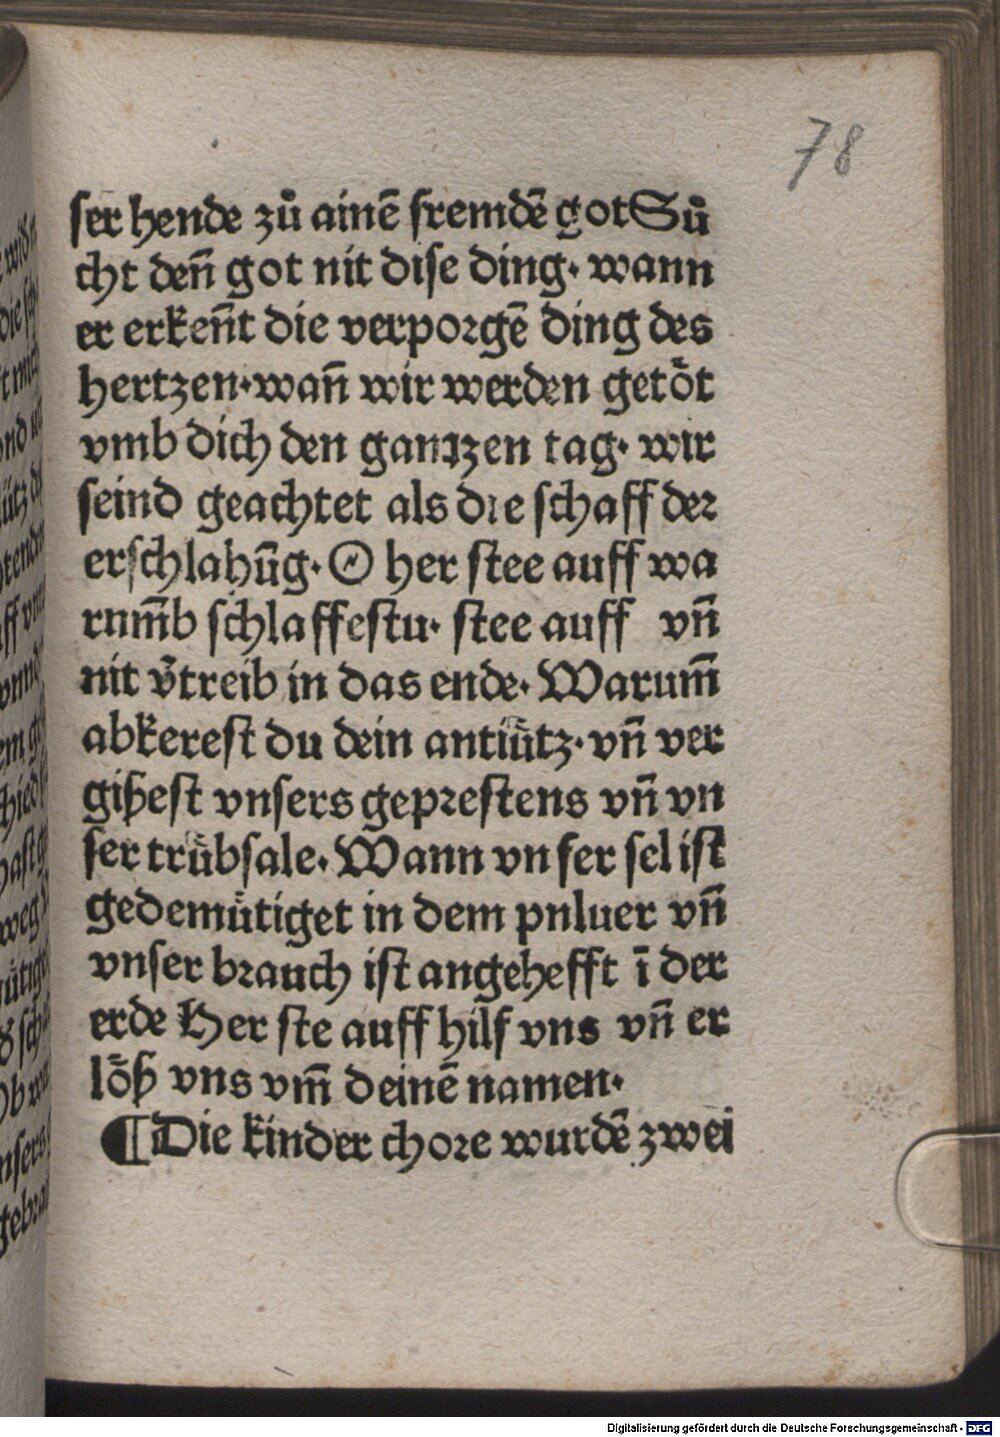 78
ser hende zů ainē fremdē got Sů
cht deñ got nit dise ding· wann
er erkeñt die verporgē ding des
hertzen·wañ wir werden getoͤt
vmb dich den gantzen tag· wir
seind geachtet als die schaff der
erschlahūg· O her stee auff wa
rum̃b schlaffestu· stee auff vñ
nit v̄treib in das ende· Warum̃
abkerest du dein antluͤtz·vñ ver
gißest vnsers geprestens vñ vn
ser truͤbsale· Wann vnser sel ist
gedemuͤtiget in dem pnluer vñ
vnser brauch ist angehefft ī der
erde Her ste auff hilf vns vñ er
loͤß vns vm̃ deinē namen·
¶Die kinder chore wurdē zwei
Digitalisierung gefördert durch die Deutsche Forschungsgemeinschaft - DFG